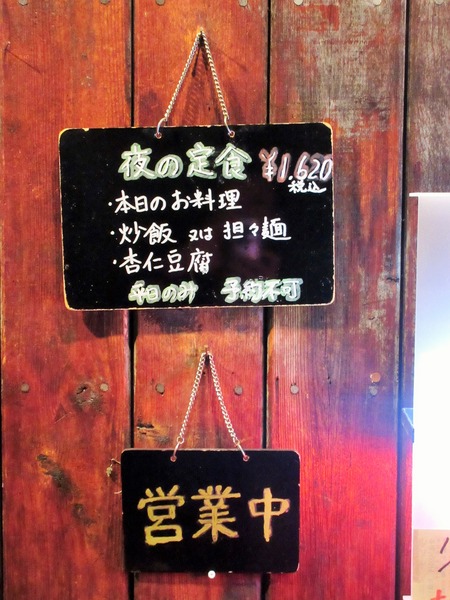 夜の定食 ¥1.620
税込
・本日のお料理
・炒飯 又は 担々麺
・杏仁豆腐
平日のみ 予約不可
営業中